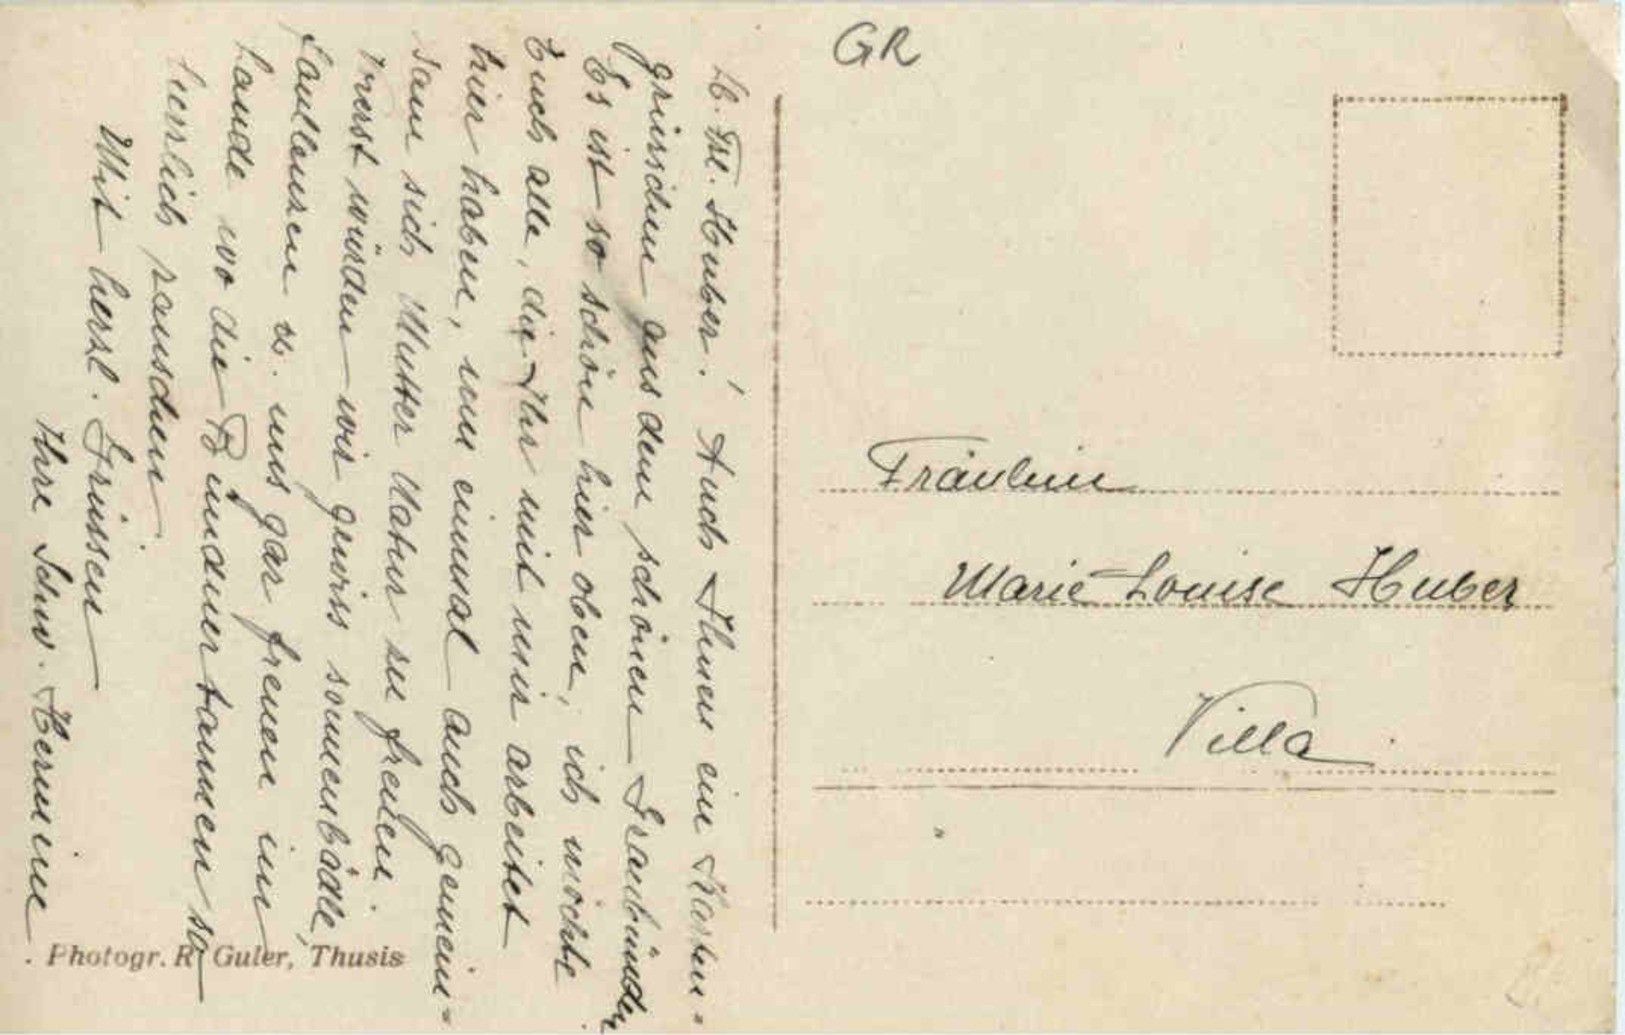 GR
Lb. Frl. Huber! Auch Ihnen ein Karten-
grüsschen aus dem schönen Graubünden
Es ist so schön hier oben, ich möchte
Euch alle, die Ihr mit mir arbeitet
hier haben, um einmal auch gemein-
sam sich Mutter Natur zu freuen.
würden wir gewiss sonnenbädle,
faullenzen u. uns gar freuen im
Lande wo die Bündnertannen so
herrlich rauschen
Mit herzl. Grüssen
Ihre Schw. Hermine
Fräulein
Marie Louise Huber
Villa
Photogr. R. Guler, Thusis